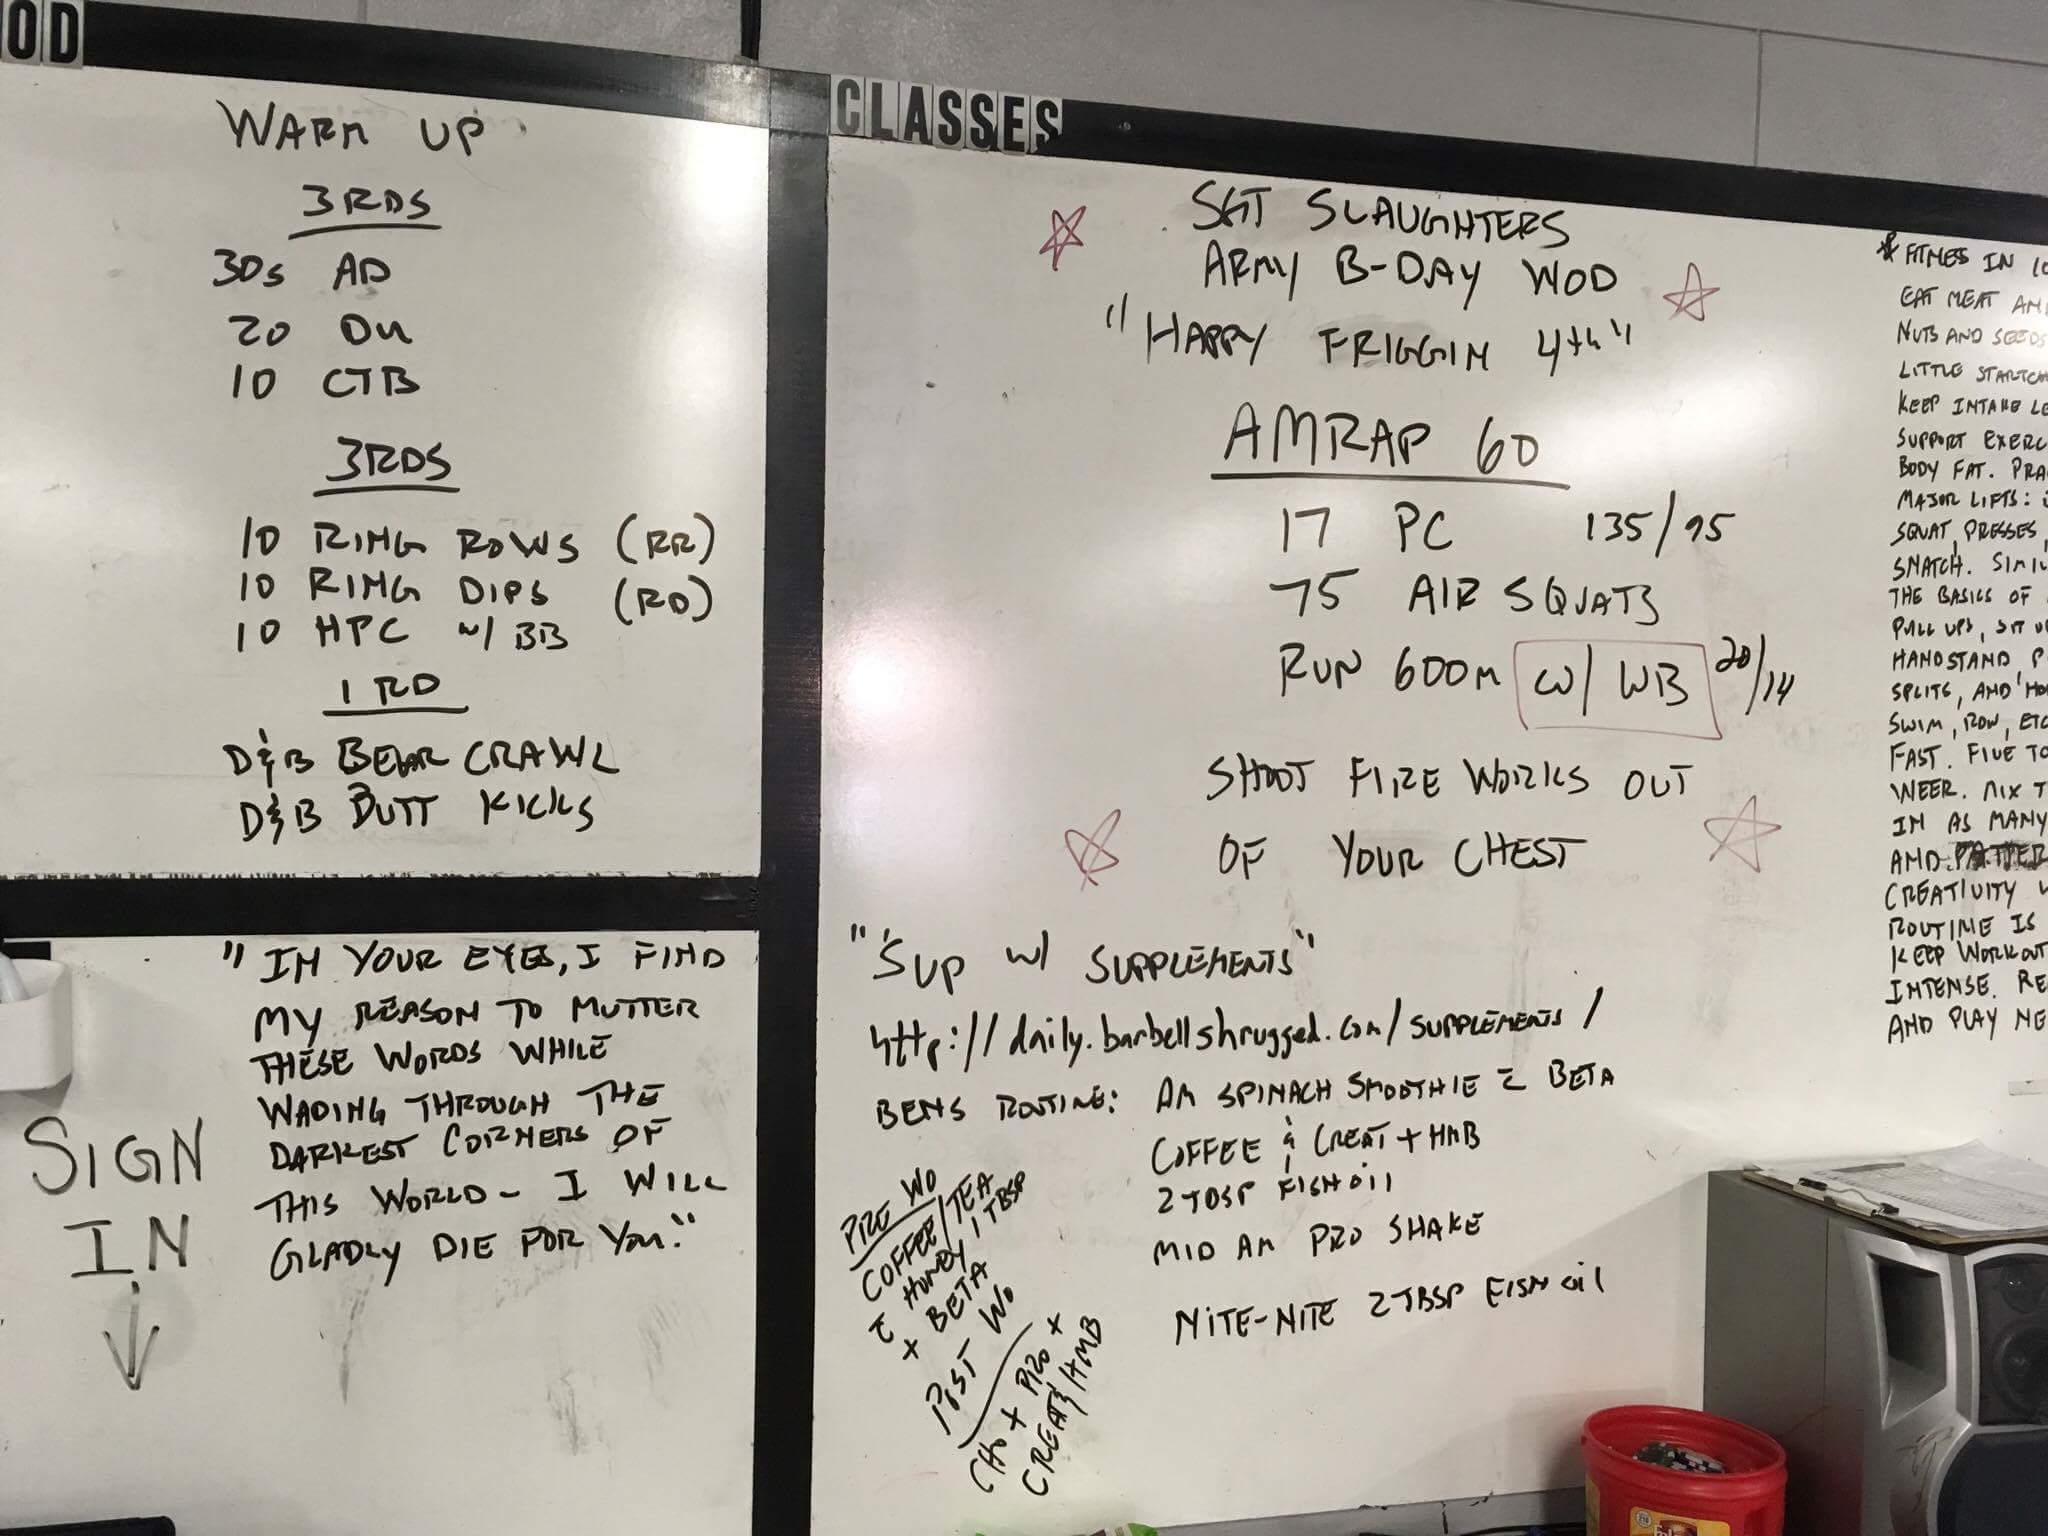 OD
WARM UP
3RDS
30s AD
20 DU
10 CTB
3RDS
10 RING ROWS (RR)
10 RING DIPS (RD)
10 HPC w/ BB
1 RD
D&B BEAR CRAWL
D&B BUTT KICKS
"IN YOUR EYES, I FIND
MY REASON TO MUTTER
THESE WORDS WHILE
WADING THROUGH THE
DARKEST CORNERS OF
THIS WORLD - I WILL
GLADLY DIE FOR YOU."
SIGN
IN
CLASSES
SGT SLAUGHTERS
ARMY B-DAY WOD
"HAPPY FRIGGIN 4th"
AMRAP 60
17 PC 135/95
75 AIR SQUATS
RUN 600m W/ WB 20/14
SHOOT FIRE WORKS OUT
OF YOUR CHEST
"SUP w/ SUPPLEMENTS"
http://daily.barbellshrugged.com/SUPPLEMENTS/
BENS ROUTINE: AM SPINACH SMOOTHIE BETA
COFFEE & CREAT + HMB
2 TBSP FISH OIL
MID AM PRO SHAKE
NITE-NITE 2 TBSP FISH OIL
PRE WO
COFFEE/TEA
HONEY 1 TBSP
+ BETA
POST WO
CHO + PRO +
CREAT/HMB
* FITNESS IN 10
EAT MEAT AN
NUTS AND SEEDS
LITTLE STARTCH
KEEP INTAKE LE
SUPPORT EXERC
BODY FAT. PRA
MAJOR LIFTS:
SQUAT, PRESSES,
SNATCH. SIMIL
THE BASICS OF
PULL UPS, SIT U
HANDSTAND P
SPLITS, AND HO
SWIM, ROW, ETC
FAST. FIVE TO
WEEK. MIX T
IN AS MANY
AND PATTER
CREATIVITY W
ROUTINE IS
KEEP WORKOUT
INTENSE. RE
AND PLAY NE